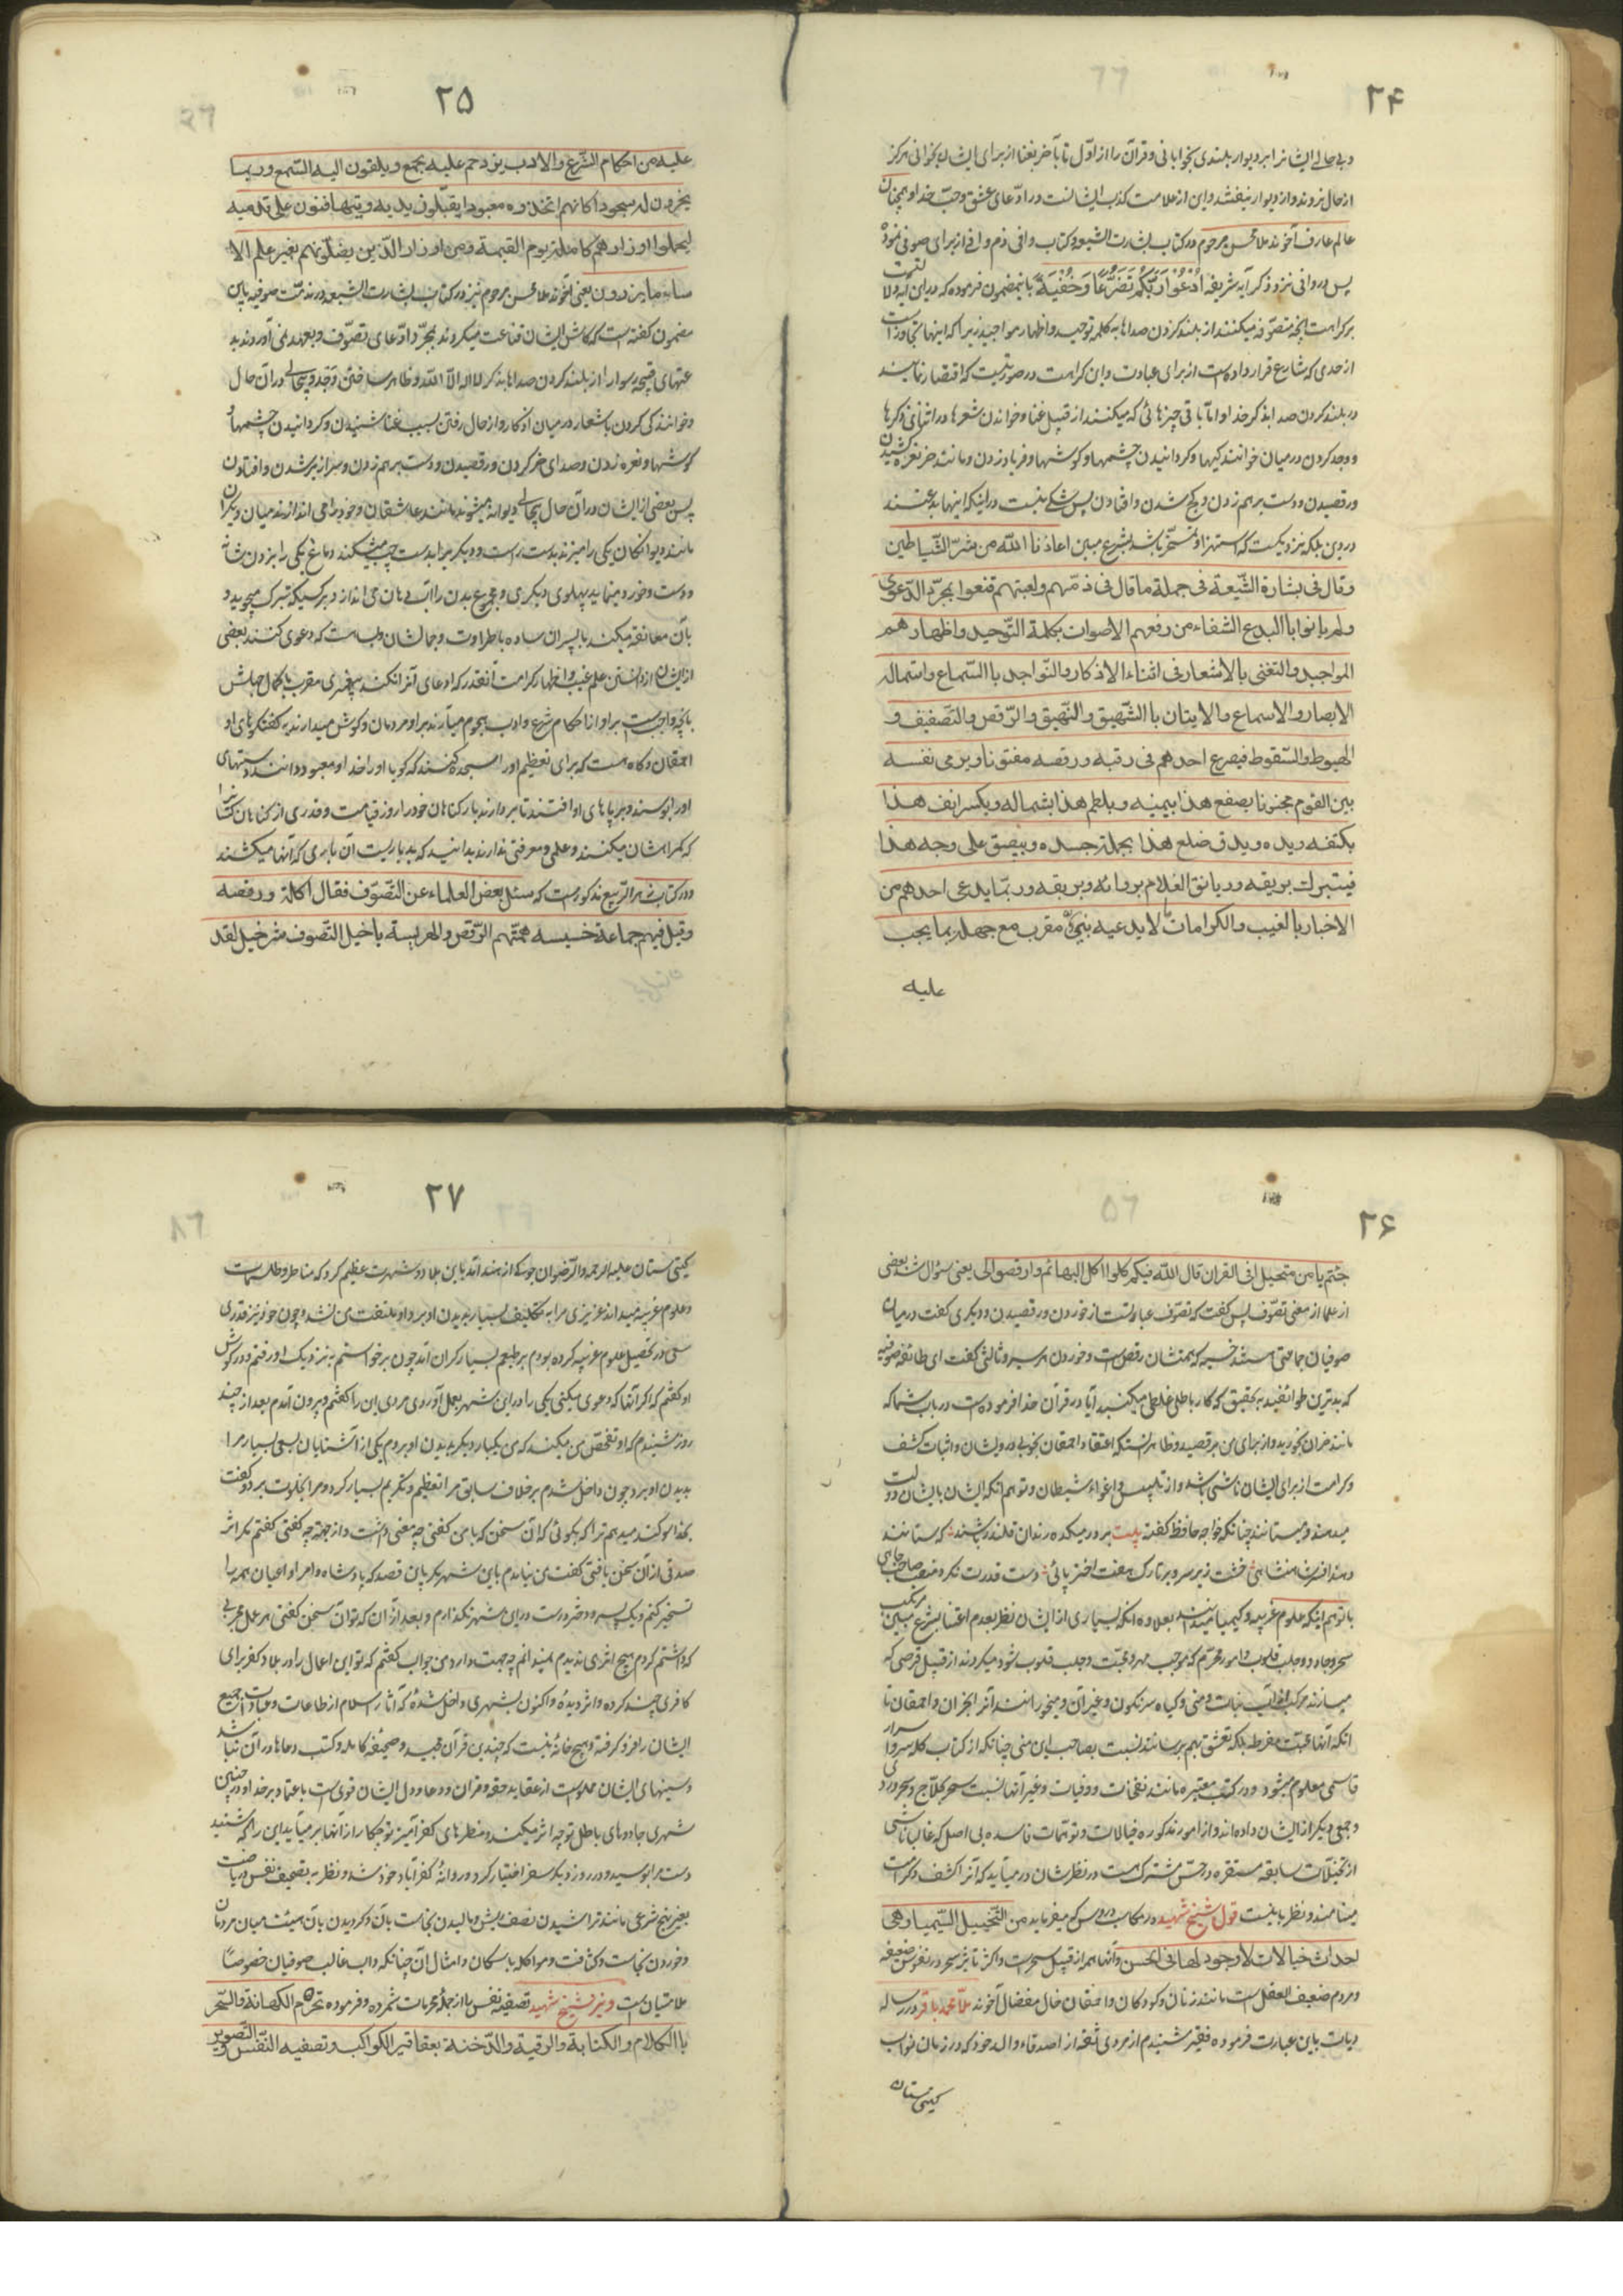 ۲۴
و بی حالی ایشانرا بر دیوار بلندی بخوابانی و قرآن را از اول تا بآخر بغنا از برای ایشان بخوانی هرگز
از حال نروند و از دیوار نیفتند و این از علامت کذب ایشانست در ادّعای عشق و حبّ خدا و همچنان
عالم عارف آخوند ملا محسن مرحوم در کتاب بشارت الشیعه و کتاب وافی ذم وافی از برای صوفی نموده
پس در وافی نزد ذکر آیه شریفه اُدْعُوْا رَبَّكُمْ تَضَرُّعًا وَخُفْيَةً باینمضمون فرموده که در این آیه دلالتست
بر کراهت آنچه متصوّفه میکنند از بلند کردن صداها به کلمه توحید و اظهار مواجید زیرا که اینها تجاوز است
از حدی که شارع قرار داده است از برای عبادت و این کراهت در صورتیست که اقتصار نمایند
در بلند کردن صدا بذکر خدا و اما باقی چیزهائی که میکنند از قبیل غنا و خواندن شعرها در اثنای ذکرها
و وجد کردن در میان خوانندگیها و گردانیدن چشمها و گوشها و فریاد زدن و مانند خر نعره کشیدن
و رقصیدن و دست بر هم زدن و کج شدن و افتادن پس شکی نیست در اینکه اینها بدعتند
در دین بلکه نزدیکست که استهزا و تمسخر باشد بشرع مبین اعاذنا الله من شرّ الشّیاطین
وقال فی بشارة الشّیعة فی جملة ما قال فی ذمّهم ولعبتهم قنعوا بمجرّد الدّعوی
ولم یاتوا باالبدع الشنعاء من رفعهم الاصوات بکلمة التّوحید واظهارهم
المواجید والتغنی بالاشعار فی اثناء الاذکار والتّواجد باالسّماع واستماله
الابصار والاسماع والایتان باالشّهیق والنّهیق والرّقص والتّصفیف و
الهبوط والسّقوط فیصرع احدهم فی رقبه ورقصه مفتونا ویرمی نفسه
بین القوم مجنونا یصفع هذا بیمینه ویلطم هذا بشماله ویکسر انف هذا
بکتفه ویده ویدق ضلع هذا بجملة جسده ویبصق علی وجه هذا
فیتبرك بریقه وربا نق الغلام بروائه وبریقه وربّما یدعی احدهم من
الاخبار باالغیب والکرامات ما لا یدعیه نبیّ مقرب مع جهله بما یجب
علیه
۲۵
علیه من احکام الشّرع والادب یزدحم علیه بجمع ویلقون الیه السّمع وربما
یخرون له سجودا کانهم اتخذوه معبودا یقبّلون یدیه ویتهافتون علی قدمیه
لیحملوا اوزارهم کاملة یوم القیمة ومن اوزار الّذین یضلّونهم بغیر علم الا
ساء ما یزرون یعنی آخوند ملا محسن مرحوم نیز در کتاب بشارت الشیعه در مذمّت صوفیه باین
مضمون گفته است که کاش ایشان قناعت میکردند بمجرّد ادّعای تصوّف و بعهد نمی آوردند بد
عتهای قبیحه رسوا را از بلند کردن صداها بذکر لا اله الّا اللّه و ظاهر ساختن وجد و بیحالی در آن حال
و خوانندگی کردن باشعار در میان اذکار و از حال رفتن بسبب غنا شنیدن و گردانیدن چشمها و
گوشها و نعره زدن و صدای خر کردن و رقصیدن و دست بر هم زدن و سرازیر شدن و افتادن
پس بعضی از ایشان در آن حال بیحالی دیوانه میشوند مانند عاشقان و خود را می اندازند میان دیگران
مانند دیوانگان یکی را میزند بدست راست و دیگر را بدست چپ میشکند دماغ یکی را بزدن شانه
و دست و خورد مینماید پهلوی دیگری و مجموع بدن را آب دهان می اندازد بر کسیکه تبرک میجوید و
بآن معانقه میکند با پسران ساده باطراوت و جمالشان و بسا هست که دعوی کنند بعضی
از ایشان از دانستن علم غیب و اظهار کرامت آنقدر که ادعای آنرا نکند پیغمبری مقرب با کمال جهلش
بآنچه واجبست بر او از احکام شرع و ادب هجوم میآرند بر او مردمان و گوش میدارند به گفتگوهای او
احمقان و گاه هست که برای تعظیم او را سجده کنند که گویا او را خدا و معبود دانند دستهای
او را بوسند و بر پاهای او افتند تا بردارند بار گناهان خود را روز قیامت و قدری از گناهان کسانیرا
که گمراهشان میکنند و علمی و معرفتی ندارند بدانید که بد باریست آن باری که آنها میکشند
و در کتاب ربیع مذکور است که سئل بعض العلماء عن التصّوف فقال اکلة ورقصه
وقیل فیهم جماعة خسیسه همّتهم الرّقص والهریسة یا خیل التصوف شر خیل لقد
۲۶
جئتم یا من متحیل افی القران قال اللّه فیکم کلوا اکل البهائم وارقصوا لی یعنی سؤال شد بعضی
از علما از معنی تصوّف پس گفت که تصوّف عبارتست از خوردن و رقصیدن و دیگری گفت در میان
صوفیان جماعتی هستند خسیسه که همتشان رقص است و خوردن هریسه و ثالثی گفت ای طائفه صوفیه
که بدترین طوائفید به تحقیق که کار باطل غلطی میکنید آیا در قرآن خدا فرموده است در باب شما که
مانند خران بخورید و از برای من برقصید و ظاهر اینستکه اعتقاد احمقان بخوبی درویشان و اثبات کشف
و کرامت از برای ایشان ناشی باشد و از تلبیس و اغواء شیطان و توهم آنکه ایشان بایشان دولت
میدهند و میستانند چنانکه خواجه حافظ گفته بیت بر در میکده رندان قلندر باشند که ستانند
و دهند افسر شاهنشاهی خشت زیر سر و بر تارک هفت اختر پای دست قدرت نگر و منصب صاحب جاهی
یا توهم اینکه علوم غریبه و کیمیا میدانند بعلاوه آنکه بسیاری از ایشان نظر بعدم اعتنا بشرع مبین مرتکب
سحر و جادو و جلب قلوب و امور محرّم که موجب مهر و محبّت و جلب قلوب شود میگردند از قبیل قرصی که
میسازند مرکب از آب نبات و منی و گیاه سرنگون و غیر آن و میخورانند آنرا بخران و احمقان تا
آنکه آنها محبّت مفرطه بلکه تعشق بهم برسانند نسبت بصاحب این منی چنانکه از کتاب کله سر و اسرار
قاسمی معلوم میشود و در کتب معتبره مانند نفحات و وفیات و غیر آنها نسبت سحر بحلاّج و سهروردی
و جمعی دیگر از ایشان داده اند و از امور مذکوره خیالات و توهّمات فاسده بی اصل که غالبا ناشی
از تخیلات سابقه مستقره در حسّ مشترک است در نظرشان در میآید که آنرا کشف و کرامت
مینامند و نظر باینست قول شیخ شهید در مکاسب دروس که میفرماید من التّخییل السّیمیا وهی
احداث خیالات لا وجود لها فی الحسن و آنها هم از قبیل سحر است و اکثر تاثیر سحر در نفوس ضعیفه
و مردم ضعیف العقل است مانند زنان و کودکان و احمقان خال مفضال آخوند ملّا محمد باقر در رساله
دیات باین عبارت فرموده فقیر شنیدم از مردی ثقه از اصدقاء والد خود که در زمان نواب
گیتی ستان
۲۷
گیتی ستان علیه الرحمه والرّضوان جوکی از هند آمد باین بلاد و شهرت عظیم کرد که مناطر و طلسمات
و علوم غریبه میداند عزیزی مرا به تکلیف بسیار بدیدن او برد او ملتفت من نشد و چون خود نیز قدری
سعی در تحصیل علوم غریبه کرده بودم بر طبعم بسیار گران آمد چون برخواستم به نزدیک او رفتم و در گوش
او گفتم که اگر آنها که دعوی میکنی یکی را در این شهر بعمل آوردی مردی این را گفتم و بیرون آمدم بعد از چند
روز شنیدم که او تفحّص من میکند که من یکبار دیگر بدیدن او بروم یکی از آشنایان بسعی بسیار مرا
بدیدن او برد چون داخل شدم بر خلاف سابق مرا تعظیم و تکریم بسیار کرد و مرا بخلوت برد و گفت
بخدا سوگند میدهم ترا که بگوئی که آن سخن که با من گفتی چه معنی داشت و از جهة چه گفتی گفتم مگر اثر
صدقی از آن سخن یافتی گفت من نیامدم باین شهر مگر باین قصد که پادشاه و امرا و اعیان همه را
تسخیر کنم و یک پسر و دختر درست در این شهر نگذارم و بعد از آن که تو آن سخن گفتی هر عمل مجربی
که داشتم کردم هیچ اثری ندیدم نمیدانم چه جهت دارد من جواب گفتم که تو این اعمال را در بلاد کفر برای
کافری چند کرده و اثر دیده و اکنون بشهری داخل شدهٔ که آثار اسلام از طاعات و عبادات جمیع
ایشان را فرو گرفته و هیچ خانهٔ نیست که چندین قرآن مجید و صحیفه کامله و کتب دعاها در آن نباشد
و سینهای ایشان مملو است از عقاید حقه و قران و دعا و دل ایشان قوی است باعتماد بر خدا و در چنین
شهری جادوهای باطل تو چه اثر میکند و منظرهای کفر آمیز تو چکار از آنها بر میآید این را که شنید
دست مرا بوسید و در روز دیگر سفر اختیار کرد و روانهٔ کفر آباد خود شد و نظر به تضعیف نفس و ریاضت
بغیر نهج شرعی مانند تراشیدن نصف ریش و مالیدن نجاست بآن و گردیدن بآن هیئت میان مردمان
و خوردن نجاست و کثافت و مواکله با سگان و امثال آن چنانکه داب غالب صوفیان خصوصاً
ملامتیان است و نیز شیخ شهید تصفیه نفس را از جمله محرمات شمرده و فرموده تحرم الکهانة والسّحر
باالکلام والکتابة والرقیة والدّخنة بعقاقیر الکواکب وتصفیه النّفس والتّصویر